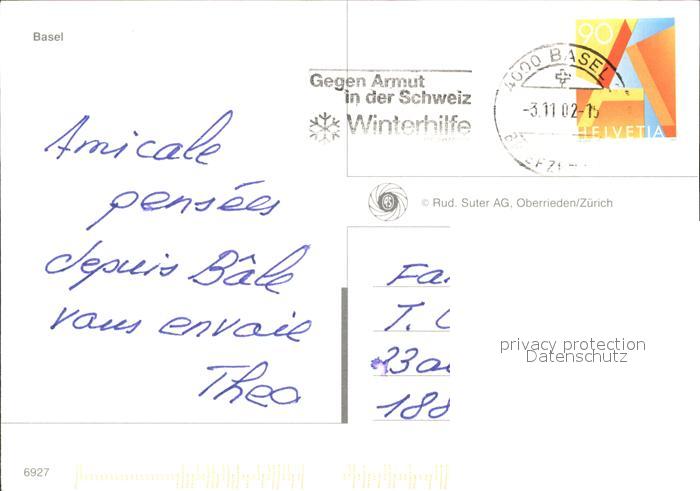 Basel
90
HELVETIA
4000 BASEL
-3.11.02-15
Gegen Armut
in der Schweiz
Winterhilfe
Amicale
pensées
depuis Bâle
vous envoie
Thea
© Rud. Suter AG, Oberrieden/Zürich
T.
188
privacy protection
Datenschutz
6927